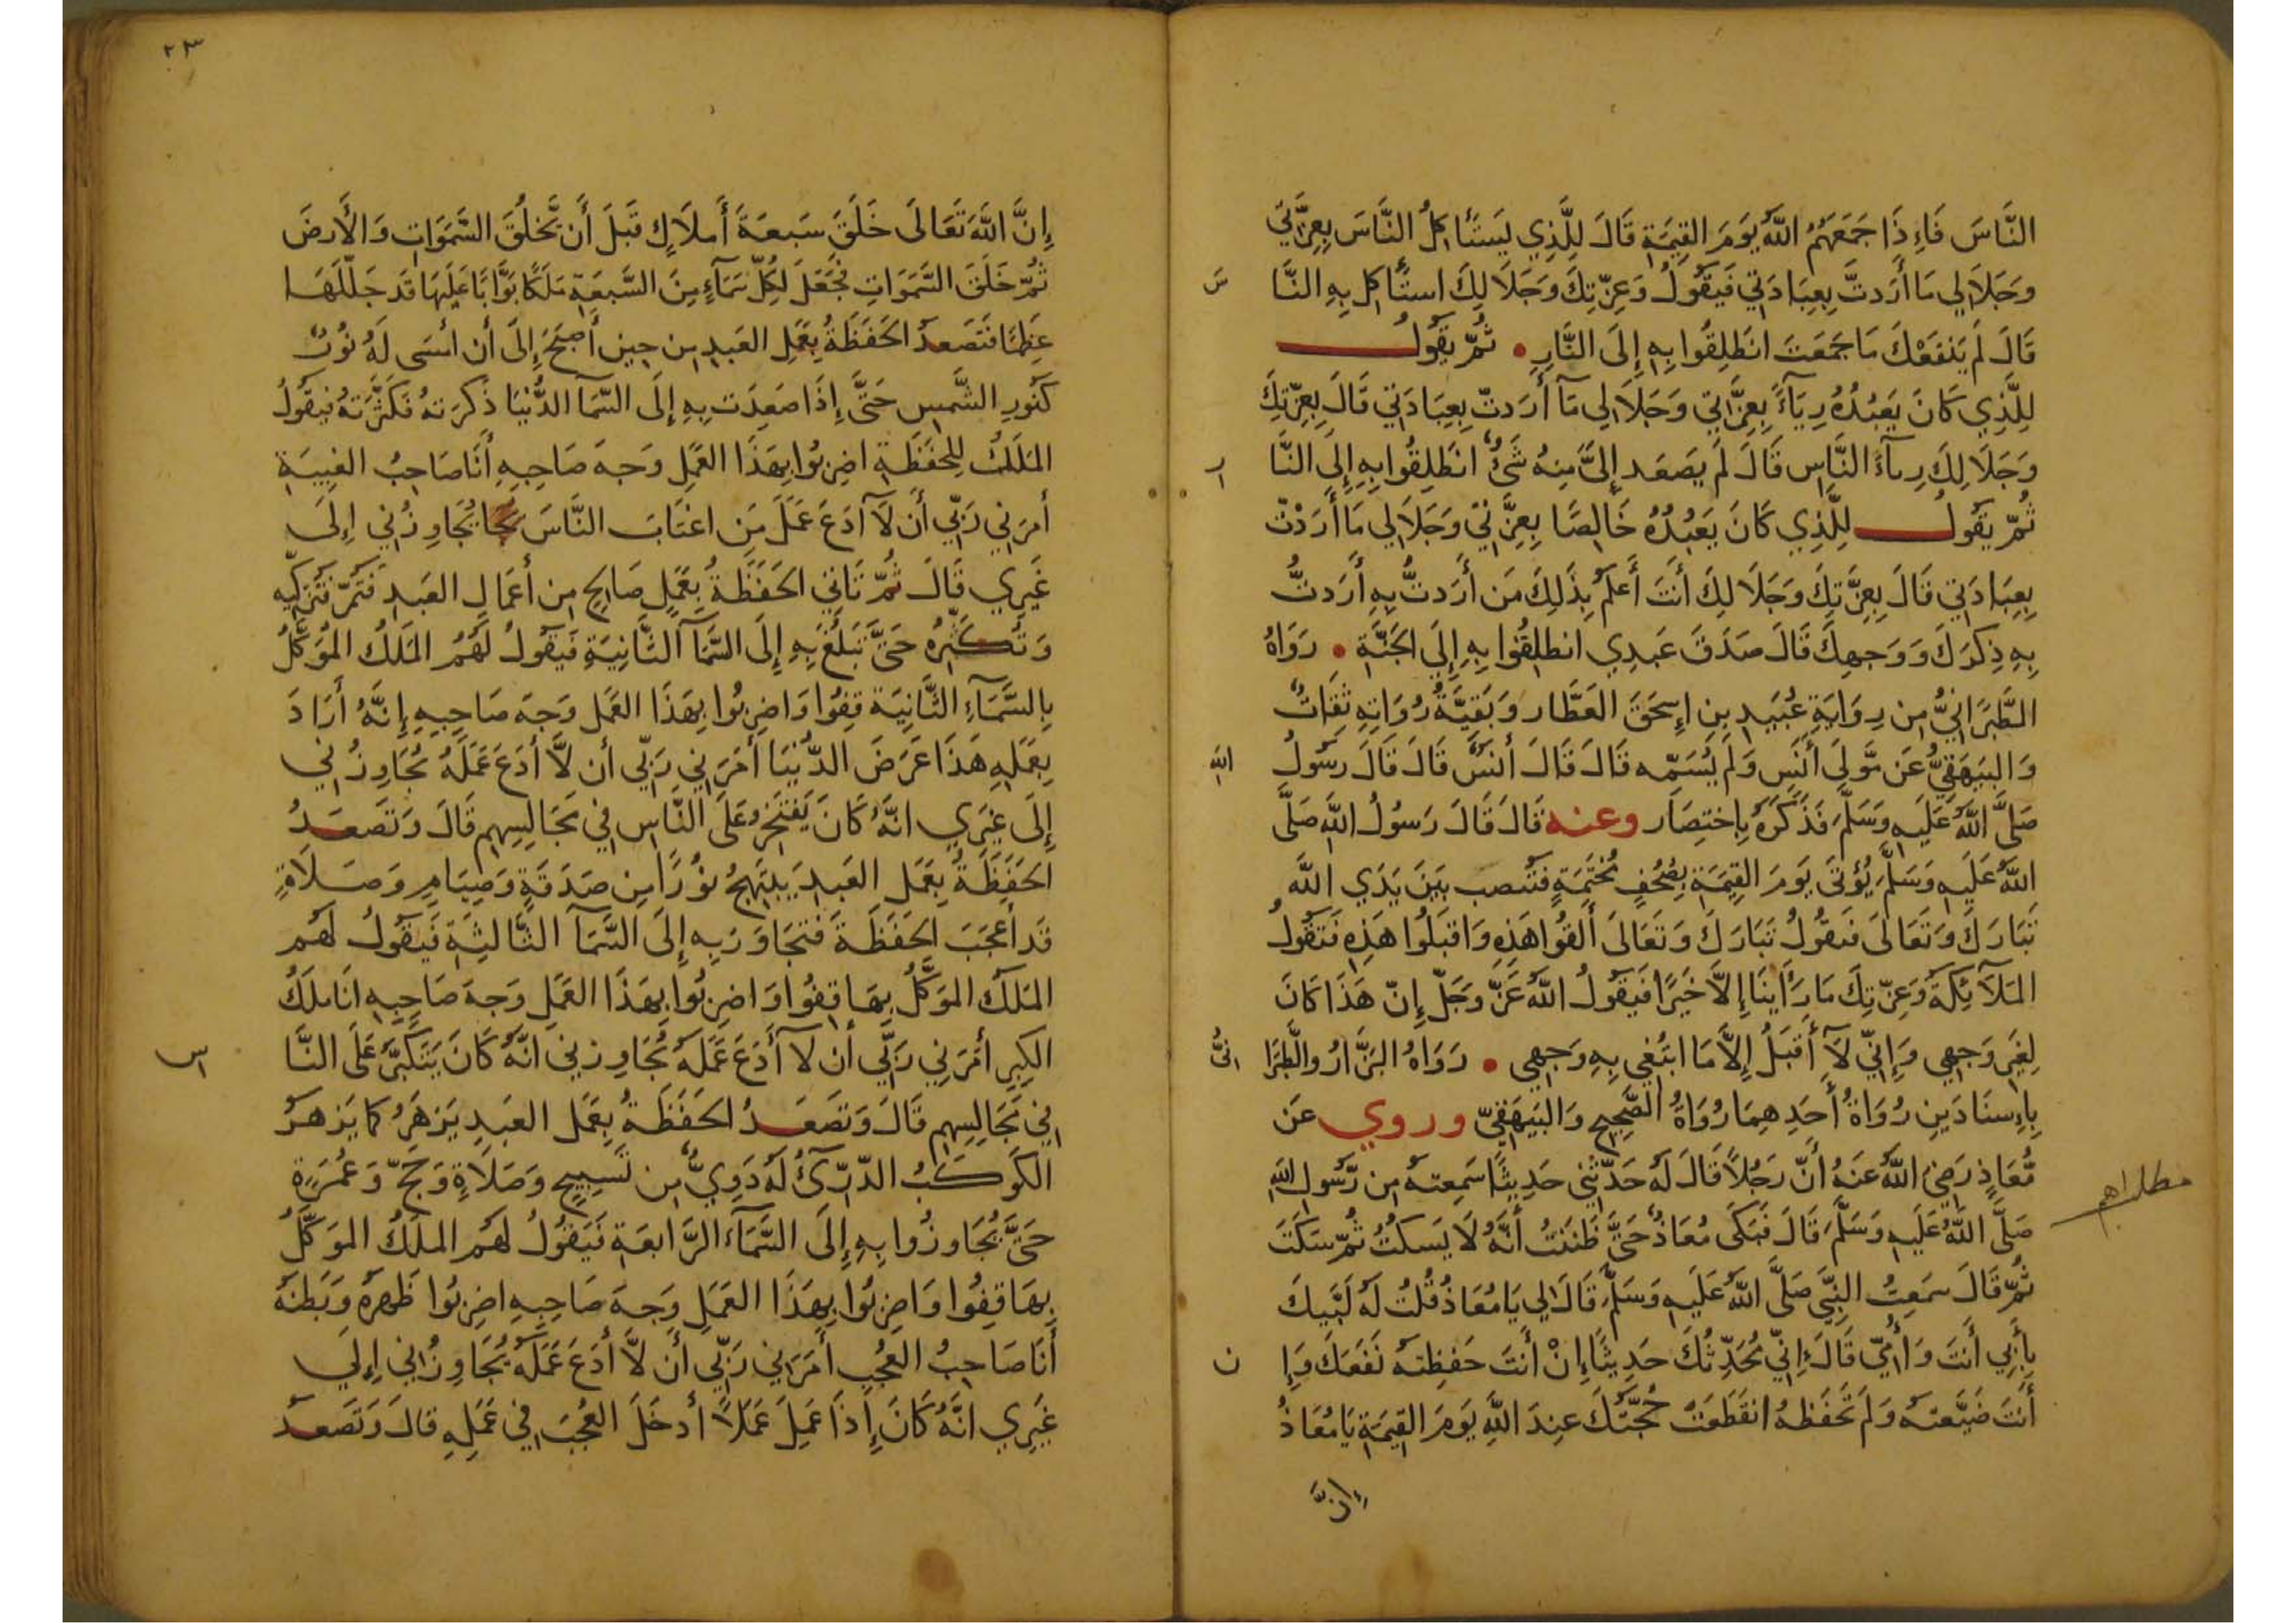 النَّاسَ فَإِذَا جَمَعَهُمُ اللَّهُ يَوْمَ القِيٰمَةِ قَالَ لِلَّذِي يَسْتَأكِلُ النَّاسَ بِعِزَّتِي
وَجَلَالِي مَا أَرَدتَّ بِعِبَادَتِي فَيَقُولُ وَعِزَّتِكَ وَجَلَالِكَ استَأكِل بِهِ النَّا سَ
قَالَ لَم يَنفَعْكَ مَا جَمَعتَ انطَلِقُوا بِهِ إِلَى النَّارِ • ثُمَّ يَقُولُ
لِلَّذِي كَانَ يَعبُدُهُ رِيَآءً بِعِزَّتِي وَجَلَالِي مَآ أَرَدتَّ بِعِبَادَتِي قَالَ بِعِزَّتِكَ
وَجَلَالِكَ رِيآءَ النَّاسِ قَالَ لَم يَصعَد إِلَيَّ مِنهُ شَيْءٌ انطَلِقُوا بِهِ إِلَى النَّا ر
ثُمَّ يَقُولُ لِلَّذِي كَانَ يَعبُدُهُ خَالِصًا بِعِزَّتِي وَجَلَالِي مَا أَرَدْتَّ
بِعِبَادَتِي قَالَ بِعِزَّتِكَ وَجَلَالِكَ أَنتَ أَعلَمُ بِذَلِكَ مَن أَرَدتُّ بِهِ أَرَدتُّ
بِهِ ذِكرَكَ وَوَجهِكَ قَالَ صَدَقَ عَبدِي انطلِقُوا بِهِ إِلَى الجَنَّةِ • رَوَاهُ
الطَّبَرَانِيُّ مِن رِوَايَةِ عُبَيدِ بنِ إِسحَقَ العَطَّار وَبَقِيَّةُ رُوَاتِهِ ثِقَاتٌ
وَالبَيهَقِيُّ عَن مَّولَى أَنَسٍ وَلَم يُسَمِّه قَالَ قَالَ أَنَسٌ قَالَ قَالَ رَسُولُ اللهِ
صَلَّى اللَّهُ عَلَيهِ وَسَلَّمَ فَذَكَرَهُ بِاختِصَار وعنه قَالَ قَالَ رَسُولُ اللَّهِ صَلَّى
اللَّهُ عَلَيهِ وَسَلَّمَ يُؤتَى يَومَ القِيٰمَةِ بِصُحُفٍ مُختَّمَةٍ فَتُنصب بَينَ يَدَي اللَّهِ
تَبَارَكَ وَتَعَالَى فَيَقُولُ تَبَارَكَ وَتَعَالَى أَلقُوا هَذِهِ وَاقبَلُوا هَذِهِ فَتَقُولُ
المَلَآئِكَةُ وَعِزَّتِكَ مَا رَأَينَا إِلَّا خَيرًا فَيَقُولُ اللَّهُ عَزَّ وَجَلَّ إِنَّ هَذَا كَانَ
لِغَيرِ وَجهِي وَإِنِّي لَآ أَقبَلُ إِلَّا مَا ابتُغِي بِهِ وَجهِي • رَوَاهُ البَزَّارُ وَالطَّبَرَا نِيُّ
بِإِسنَادَينِ رُوَاةُ أَحَدِهِمَا رُوَاةُ الصَّحِيحِ وَالبَيهَقِيّ وروي عَن
مُّعَاذٍ رَضِيَ اللَّهُ عَنهُ أَنَّ رَجُلًا قَالَ لَهُ حَدِّثنِي حَدِيثًا سَمِعتَهُ مِن رَّسُولِ اللَّهِ
صَلَّى اللَّهُ عَلَيهِ وَسَلَّمَ قَالَ فَبَكَى مُعَاذٌ حَتَّى ظَنَنتُ أَنَّهُ لَا يَسكُتُ ثُمَّ سَكَتَ
ثُمَّ قَالَ سَمِعتُ النَّبِيَّ صَلَّى اللَّهُ عَلَيهِ وَسَلَّمَ قَالَ لِي يَا مُعَاذُ قُلتُ لَهُ لَبَّيكَ
بِأَبِي أَنتَ وَأُمِّي قَالَ إِنِّي مُحَدِّثُكَ حَدِيثًا إِنْ أَنتَ حَفِظتَهُ نَفَعَكَ وَإِ ن
أَنتَ ضَيَّعتَهُ وَلَم تَحفَظهُ انقَطَعَتْ حُجَّتُكَ عِندَ اللَّهِ يَومَ القِيٰمَةِ يَا مُعَاذُ
إنَّ
٢٣
إِنَّ اللَّهَ تَعَالَى خَلَقَ سَبعَةَ أَملَاكٍ قَبلَ أَن يَّخلُقَ السَّمَوَاتِ وَالأَرضَ
ثُمَّ خَلَقَ السَّمَوَاتِ فَجَعَلَ لِكُلِّ سَمَآءٍ مِنَ السَّبعَةِ مَلَكًا بَوَّابًا عَلَيهَا قَد جَلَّلَهَا
عِظَمًا فَتَصعدُ الحَفَظَةُ بِعَمَلِ العَبدِ مِن حِينِ أَصبَحَ إِلَى أَن أمسَى لَهُ نُورٌ
كَنُورِ الشَّمسِ حَتَّى إِذَا صَعِدَت بِهِ إِلَى السَّمَآ الدُّنيَا ذَكرَتهُ فَكَثَّرَتهُ فَيَقُولُ
المَلَكُ لِلحَفَظَةِ اضرِبُوا بِهَذَا العَمَلِ وَجهَ صَاحِبِهِ أَنَا صَاحِبُ الغِيبَةِ
أَمَرَنِي رَبِّي أَن لَآ أَدَعَ عَمَلَ مَنِ اغتَابَ النَّاسَ يُجَاوِزُنِي إِلَى
غَيرِي قَالَ ثُمَّ تَأتِي الحَفَظَةُ بِعَمَلٍ صَالِحٍ مِن أَعمَالِ العَبدِ فَتَمُرُّ فَتُزَكِّيهِ
وَتُكَثِّرُهُ حَتَّى تَبلُغَ بِهِ إِلَى السَّمَآ الثَّانِيَةِ فَيَقُولُ لَهُمُ المَلَكُ المُوَكَّلُ
بِالسَّمَآءِ الثَّانِيَة قِفُوا وَاضرِبُوا بِهَذَا العَمَلِ وَجهَ صَاحِبِهِ إِنَّهُ أَرَادَ
بِعَمَلِهِ هَذَا عَرَضَ الدُّنيَا أَمَرَنِي رَبِّي أَن لَّا أَدَعَ عَمَلَهُ يُجَاوِزُنِي
إِلَى غَيرِي انَّهُ كَانَ يَفتَخِرُ عَلَى النَّاسِ فِي مَجَالِسِهِم قَالَ وَتَصعَدُ
الحَفَظَةُ بِعَمَلِ العَبدِ يَبتَهِجُ نُورًا مِن صَدَقَةٍ وَصِيَامٍ وَصَلَاةٍ
قَد أَعجَبَ الحَفَظَةَ فَتجَاوَزُ بِهِ إِلَى السَّمَآ الثَّالِثَةِ فَيَقُولُ لَهُم
المَلَكُ المُوَكَّلُ بِهَا قِفُوا وَاضرِبُوا بِهَذَا العَمَلِ وَجهَ صَاحِبِهِ انَا مَلَكُ
الكِبرِ أَمَرَنِي رَبِّي أَن لَآ أَدَعَ عَمَلَهُ يُجَاوِزنِي انَّهُ كَانَ يَتَكَبَّرُ عَلَى النَّا س
فِي مَجَالِسِهِم قَالَ وَتَصعَدُ الحَفَظَةُ بِعَمَلِ العَبدِ يَزهَرُ كَمَا يَزهَرُ
الكَوكَبُ الدُّرِّيُّ لَهُ دَوِيٌّ مِن تَسبِيحٍ وَصَلَاةٍ وَحَجٍّ وَعُمرَةٍ
حَتَّى يُجَاوزُوا بِهِ إِلَى السَّمَآءَ الرَّابعَةِ فَيَقُولُ لَهُم المَلَكُ المُوَكَّلُ
بِهَا قِفُوا وَاضرِبُوا بِهَذَا العَمَلِ وَجهَ صَاحِبِهِ اضرِبُوا ظَهرَهُ وَبَطنَهُ
أَنَا صَاحِبُ العُجبِ أَمَرَنِي رَبِّي أَن لَّا أَدَعَ عَمَلَهُ يُجَاوِزُنِي إِلَى
غَيرِي انَّهُ كَانَ إِذَا عَمِلَ عَمَلًا أَدخَلَ العُجبَ فِي عَمَلِهِ قَالَ وَتَصعَدُ